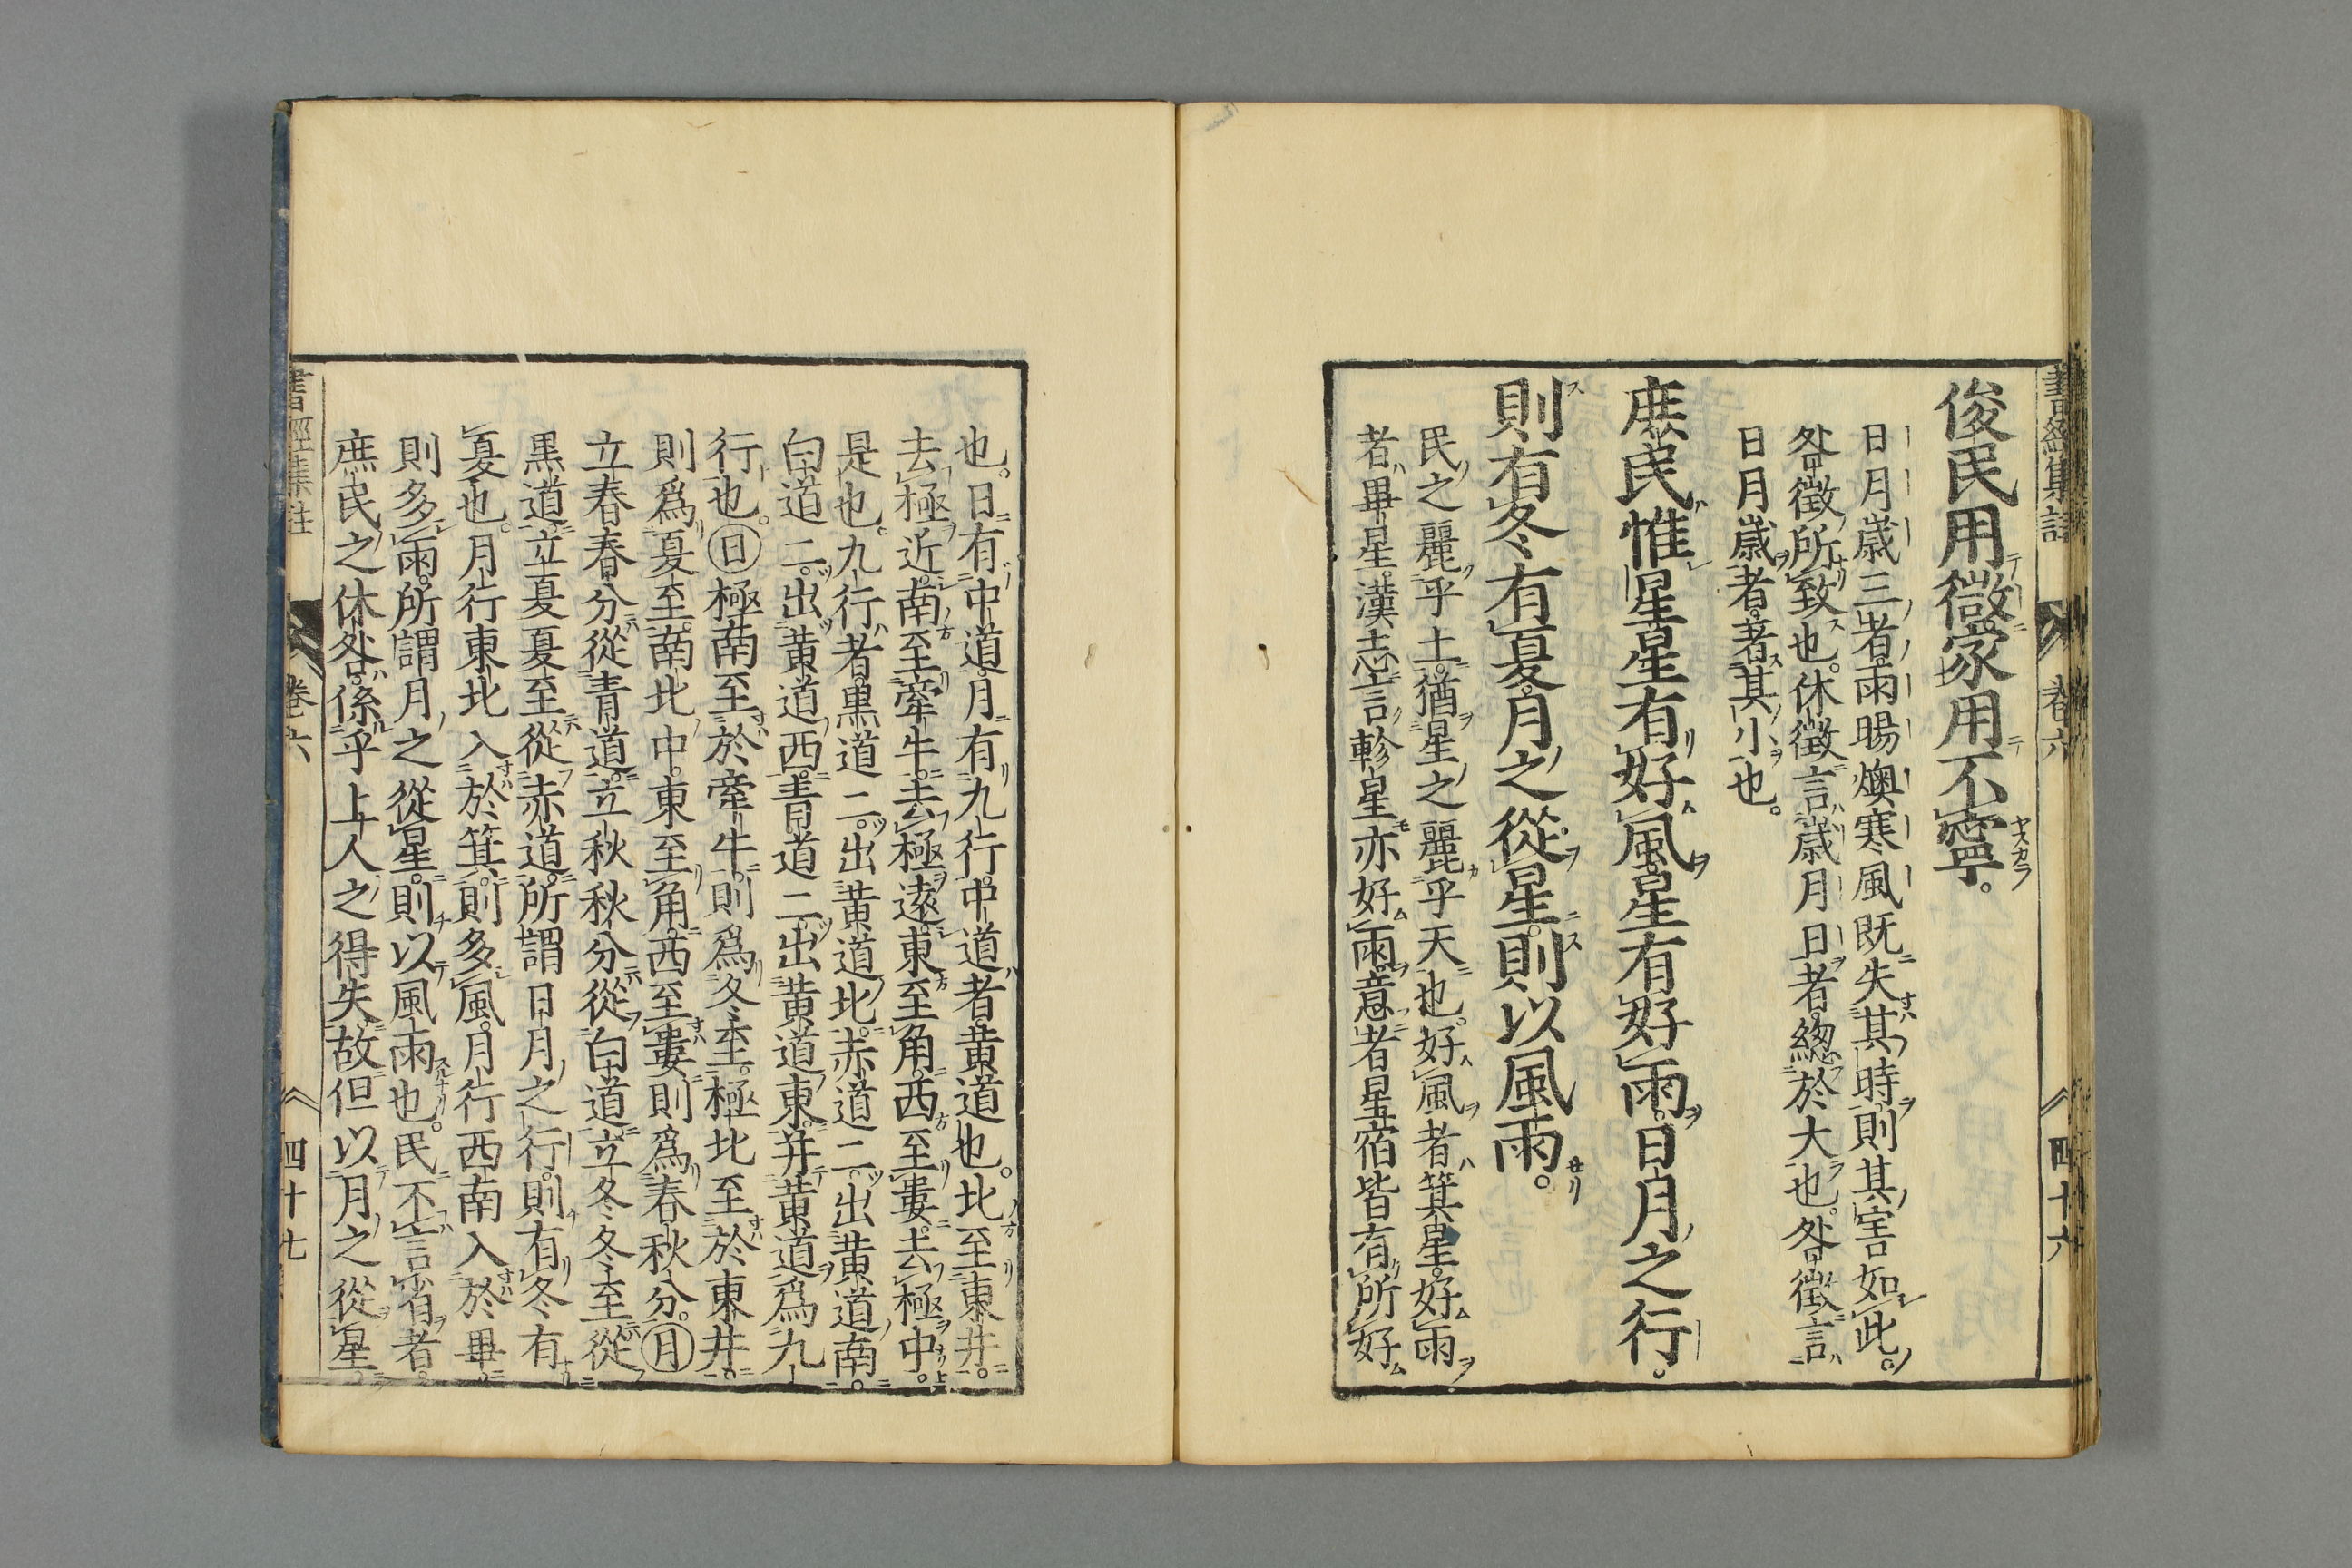 書經集註 卷六 四十六
俊民用微家用不寧。
日月歲三者雨暘燠寒風既失其時則其害如此。
咎徵所致也。休徵言歲月日者總於大也。咎徵言
日月歲者著其小也。
庶民惟星星有好風星有好雨日月之行。
則有冬有夏月之從星則以風雨。
民之麗乎土猶星之麗乎天也。好風者箕星好雨
者畢星漢志言軫星亦好雨意者星宿皆有所好
也。日有中道月有九行中道者黃道也。北至東井。
去極近南至牽牛去極遠東至角西至婁去極中。
是也九行者黑道二出黃道北赤道二出黃道南。
白道二出黃道西青道二出黃道東并黃道爲九
行也。日極南至於牽牛則爲冬至極北至於東井。
則爲夏至南北中東至角西至婁則爲春秋分。月
立春春分從青道立秋秋分從白道立冬冬至從
黑道立夏夏至從赤道所謂日月之行則有冬有
夏也。月行東北入於箕則多風月行西南入於畢
則多雨所謂月之從星則以風雨也。民不言省者。
庶民之休咎係乎上人之得失故但以月之從星。
書經集註 卷六 四十七